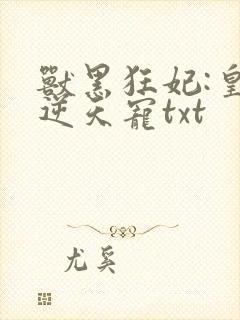 獸黑狂妃:皇
逆天寵txt
尤奚